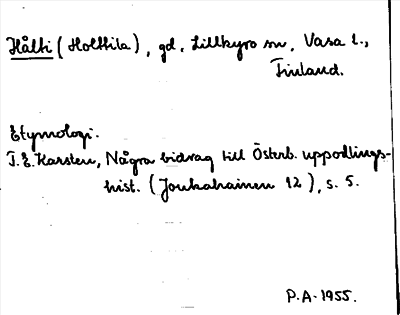 Hålti (Holttila), gd, Lillkyro sn, Vasa l.,
Finland.
Etymologi.
T.E. Karsten, Några bidrag till Österb. uppodlings-
hist. (Joukahainen 12), s. 5.
P.A. 1955.